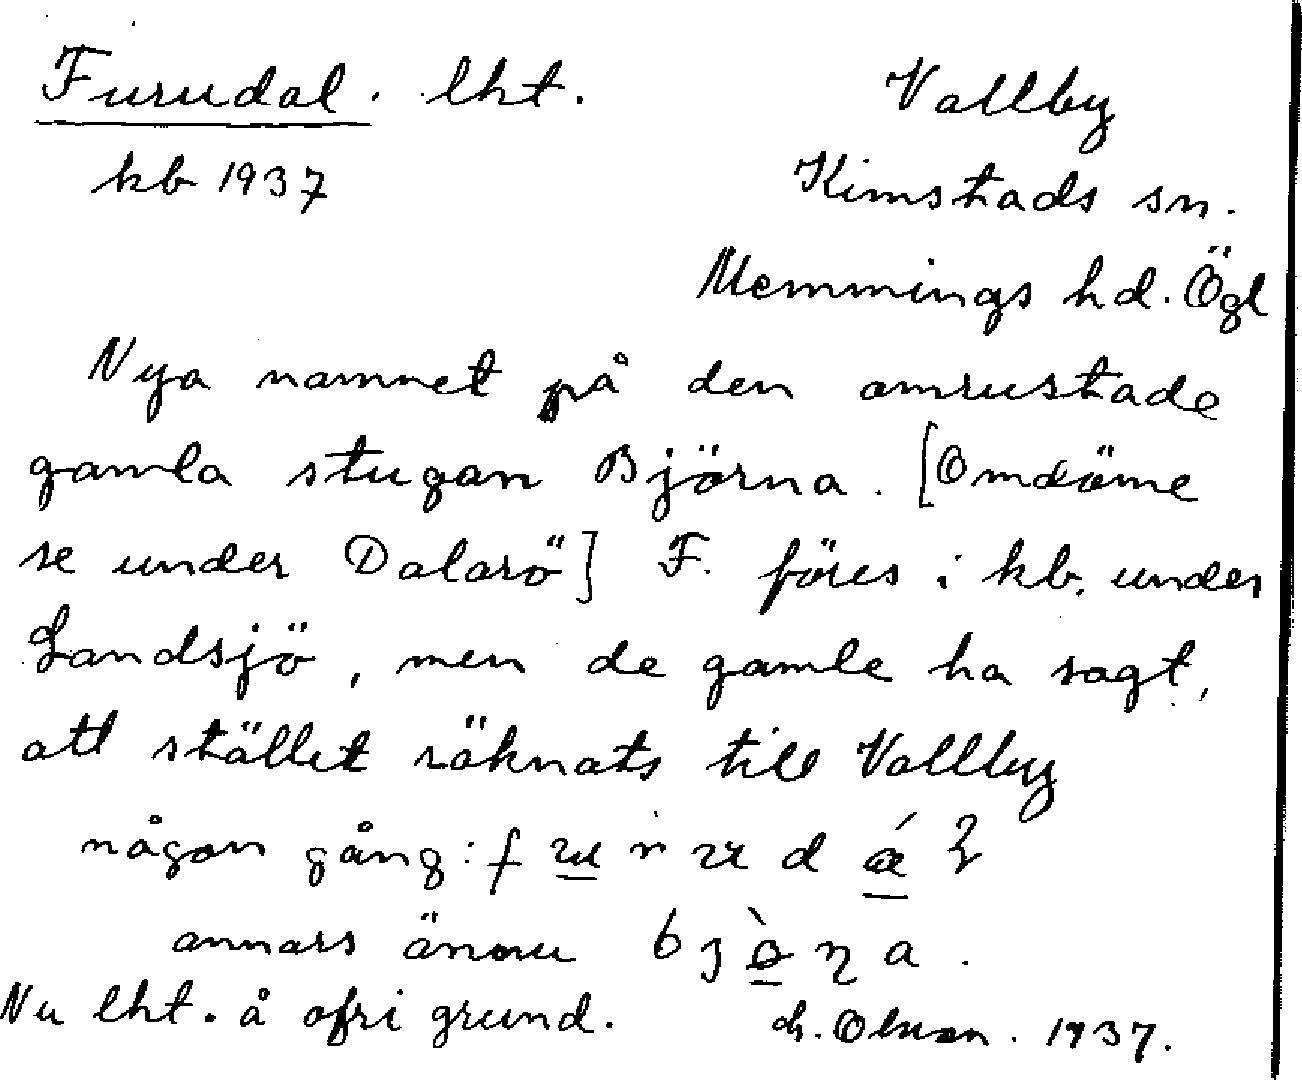 Furudal. lht. Vallby
kb 1937 Kimstads sn.
Memmings hd. Ögl
Nya namnet på den omrustade
gamla stugan Björna. [Omdöme
se under Dalarö] F. föres i kb. under
Landsjö, men de gamle ha sagt,
att stället räknats till Vallby
någon gång:
annars ännu
Nu lht. å ofri grund. 1937.